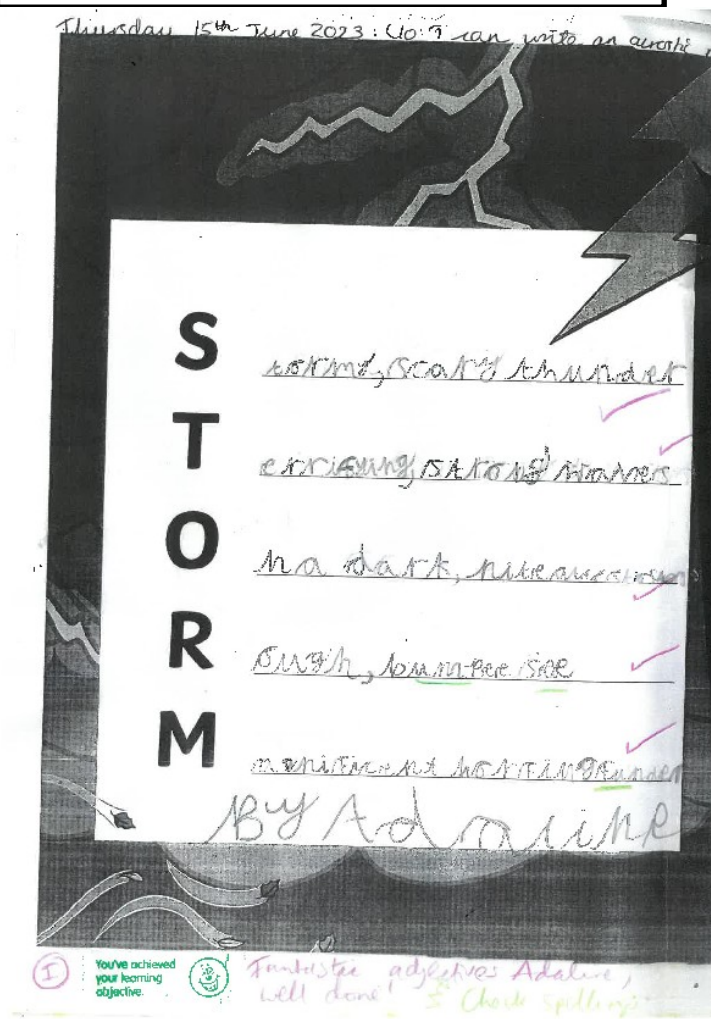 Thursday 15th June 2023: LO: I can write an acrostic
S tormy, scary thunder
T erriying, strong
O n a dark,
R ough, bumpee see
M
By Adaline
I
You've achieved
your learning
objective.
Fantastic adjectives Adaline,
well done! Check spellings